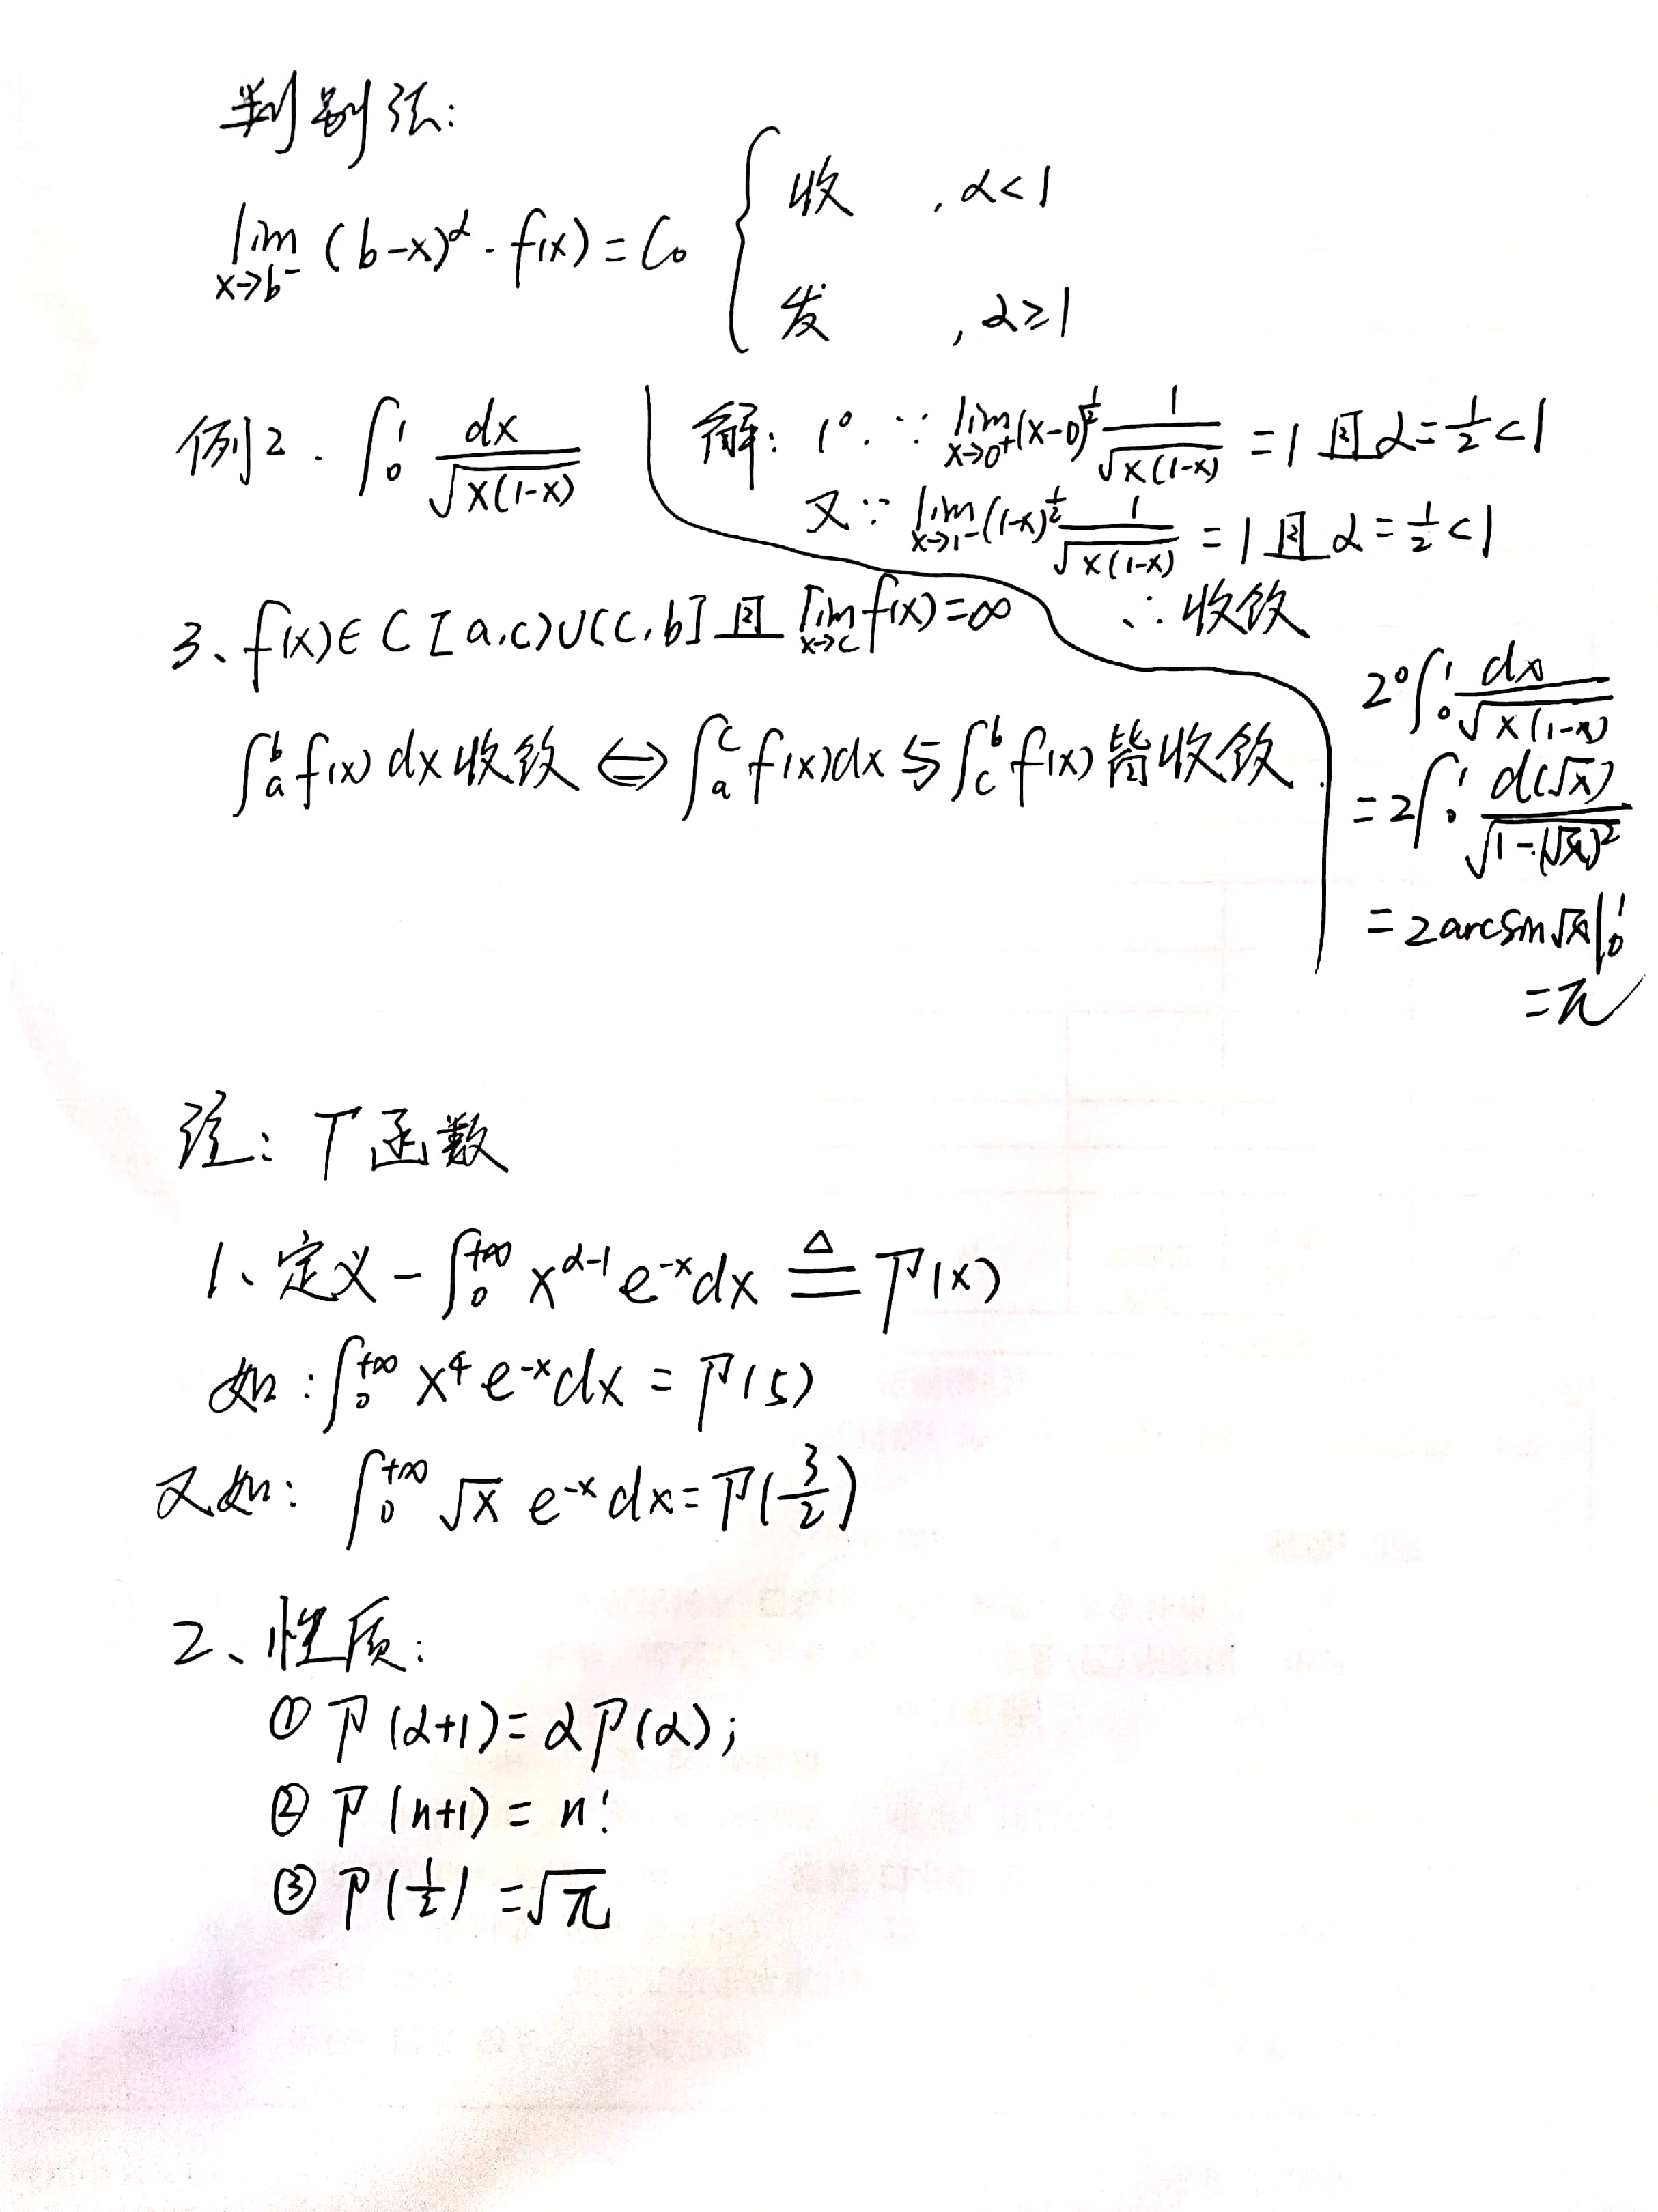 判别法:
lim_{x→b⁻} (b-x)^α · f(x) = C₀ { 收 , α<1
发 , α≥1
例2. ∫₀¹ dx/√(x(1-x))
解: 1°. ∵ lim_{x→0⁺} (x-0)^{1/2} 1/√(x(1-x)) = 1 且 α = 1/2 < 1
又∵ lim_{x→1⁻} (1-x)^{1/2} 1/√(x(1-x)) = 1 且 α = 1/2 < 1
∴ 收敛
2° ∫₀¹ dx/√(x(1-x))
= 2∫₀¹ d(√x)/√(1-(√x)²)
= 2arcsin√x |₀¹
= π
3、f(x)∈C[a,c)∪(c,b] 且 lim_{x→c} f(x) = ∞
∫_a^b f(x)dx 收敛 ⇔ ∫_a^c f(x)dx 与 ∫_c^b f(x) 皆收敛.
注: Γ函数
1、定义 - ∫₀^{+∞} x^{α-1} e^{-x} dx ≜ Γ(x)
如: ∫₀^{+∞} x⁴ e^{-x} dx = Γ(5)
又如: ∫₀^{+∞} √x e^{-x} dx = Γ(3/2)
2、性质:
① Γ(α+1) = αΓ(α);
② Γ(n+1) = n!
③ Γ(1/2) = √π